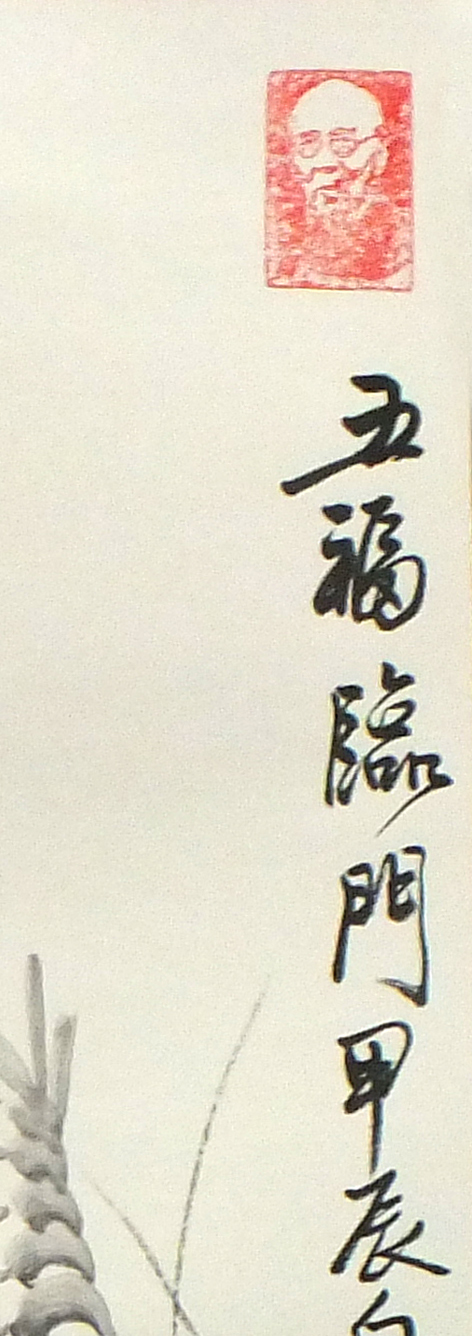 五福臨門甲辰